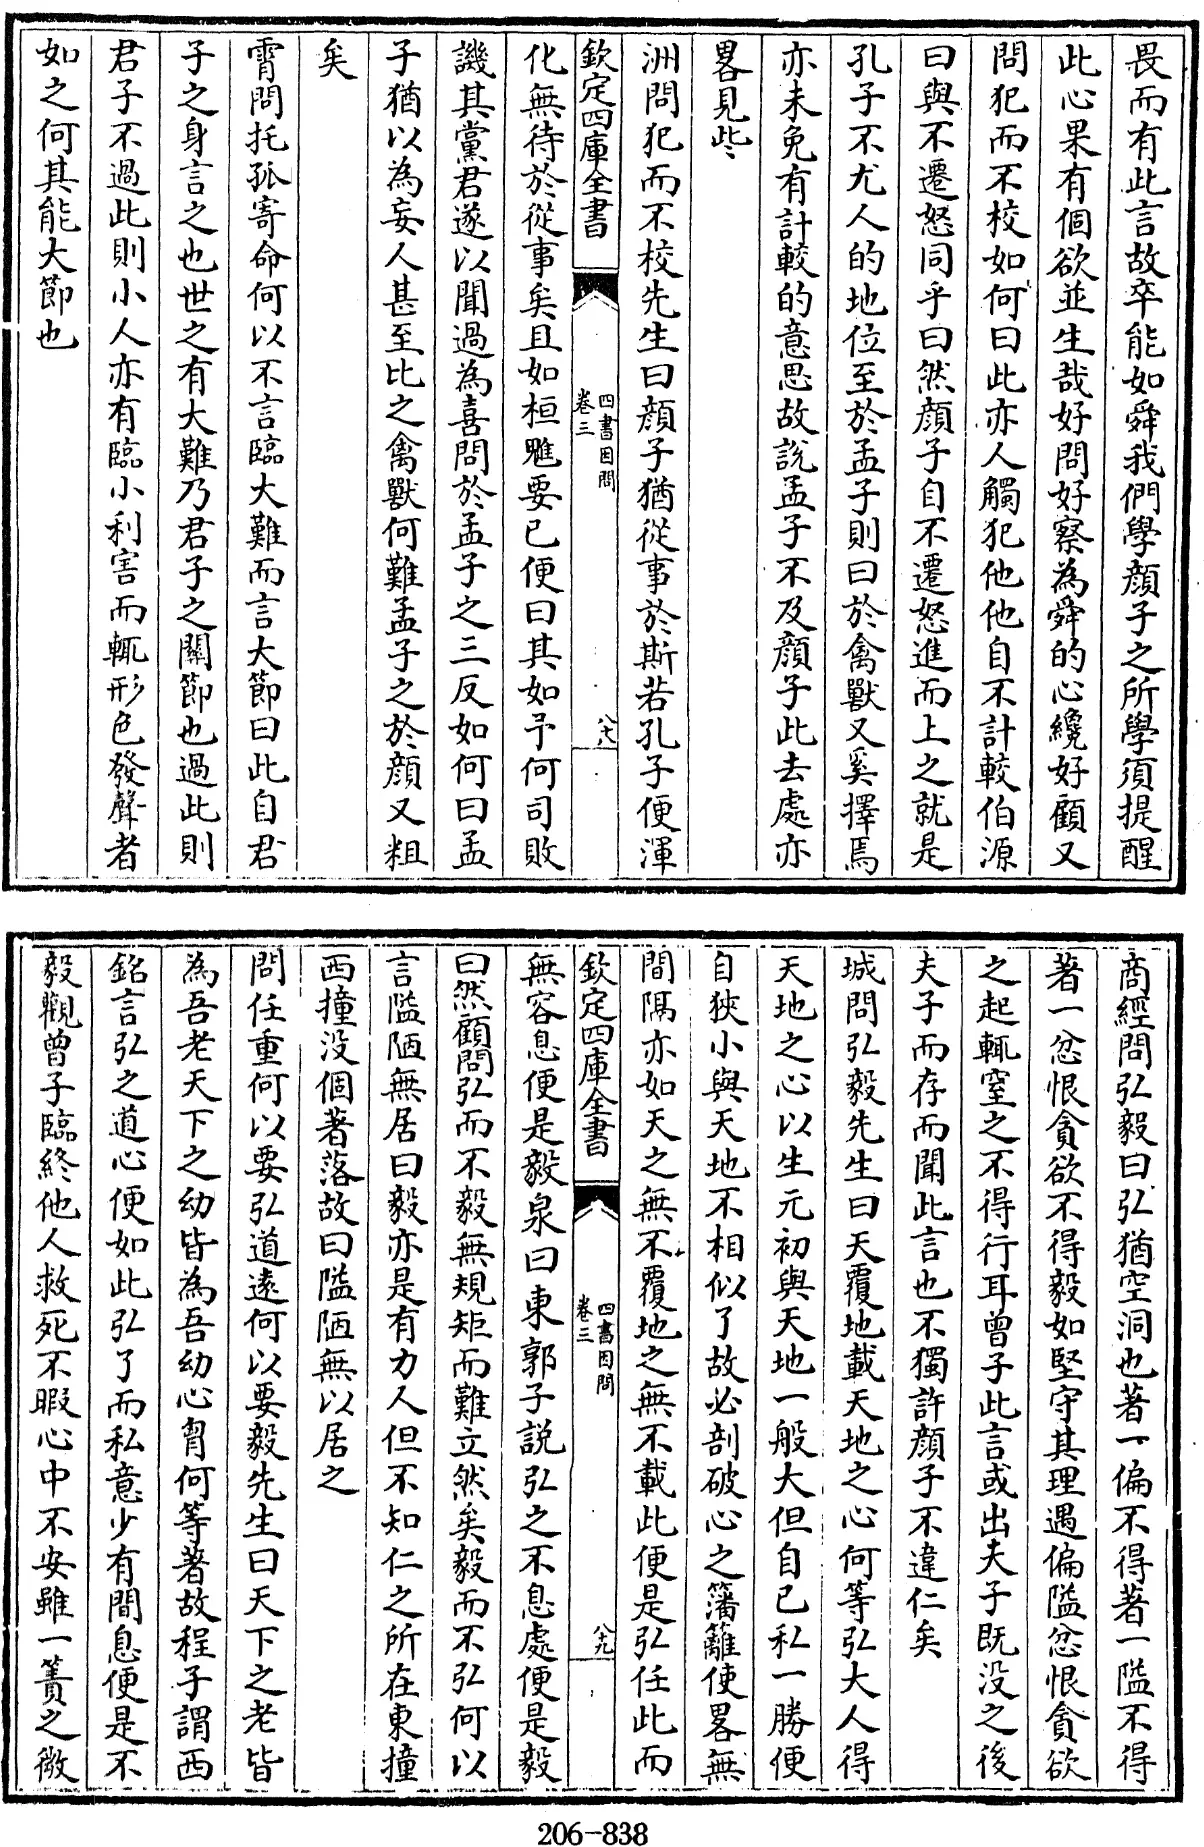 畏而有此言故卒能如舜我們學顔子之所學須提醒
此心果有個欲並生哉好問好察為舜的心纔好顧又
問犯而不校如何曰此亦人觸犯他他自不計較伯源
曰與不遷怒同乎曰然顔子自不遷怒進而上之就是
孔子不尤人的地位至於孟子則曰於禽獸又奚擇焉
亦未免有計較的意思故說孟子不及顔子此去處亦
畧見些
洲問犯而不校先生曰顔子猶從事於斯若孔子便渾
欽定四庫全書
四書因問
卷三
八十八
化無待於從事矣且如桓魋要已便曰其如予何司敗
譏其黨君遂以聞過為喜問於孟子之三反如何曰孟
子猶以為妄人甚至比之禽獸何難孟子之於顔又粗
矣
霄問托孤寄命何以不言臨大難而言大節曰此自君
子之身言之也世之有大難乃君子之關節也過此則
君子不過此則小人亦有臨小利害而輒形色發聲者
如之何其能大節也
商經問弘毅曰弘猶空洞也著一偏不得著一隘不得
著一忿恨貪欲不得毅如堅守其理遇偏隘忿恨貪欲
之起輒窒之不得行耳曾子此言或出夫子既没之後
夫子而存而聞此言也不獨許顔子不違仁矣
城問弘毅先生曰天覆地載天地之心何等弘大人得
天地之心以生元初與天地一般大但自已私一勝便
自狹小與天地不相似了故必剖破心之藩籬使畧無
間隔亦如天之無不覆地之無不載此便是弘任此而
欽定四庫全書
四書因問
卷三
八十九
無容息便是毅泉曰東郭子說弘之不息處便是毅
曰然顧問弘而不毅無規矩而難立然矣毅而不弘何以
言隘陋無居曰毅亦是有力人但不知仁之所在東撞
西撞没個著落故曰隘陋無以居之
問任重何以要弘道遠何以要毅先生曰天下之老皆
為吾老天下之幼皆為吾幼心胷何等著故程子謂西
銘言弘之道心便如此弘了而私意少有間息便是不
毅觀曾子臨終他人救死不暇心中不安雖一簀之微
206-838